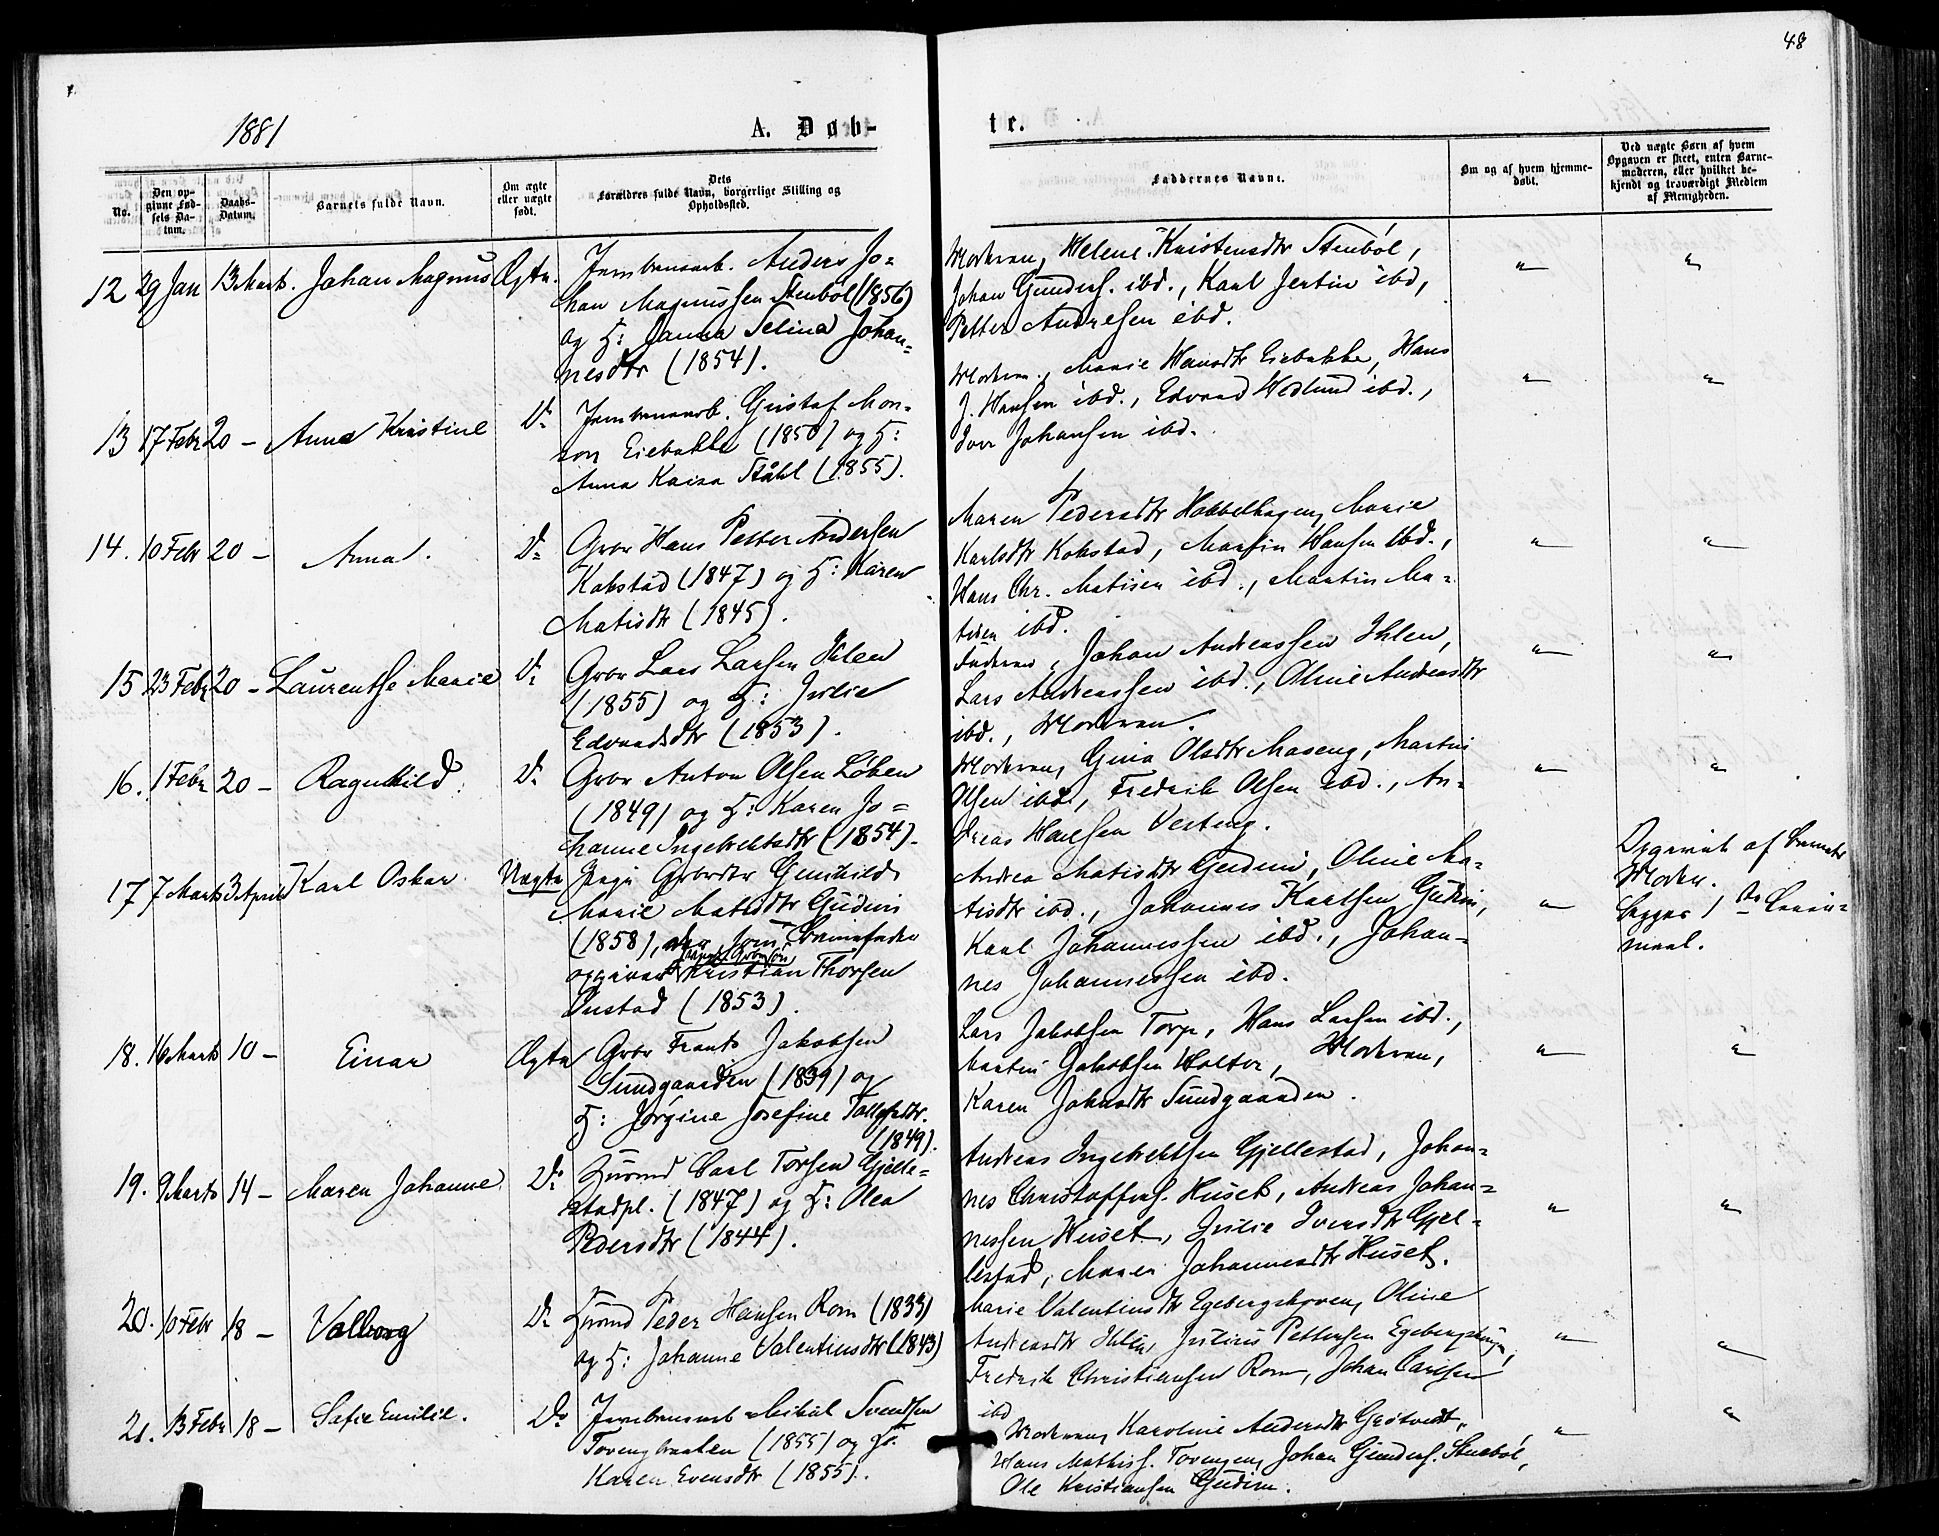 48
1881
A. Døb-
te.
No.
Den op-
givne Fød-
sels Da-
tum.
Daabs-
Datum.
Barnets fulde Navn.
Om ægte
eller uægte
født.
Dets
Forældres fulde Navn, borgerlige Stilling og
Opholdssted.
Faddernes Navne.
Om og af hvem hjemme-
døbt.
Ved uægte Børn af hvem
Opgaven er skeet, enten Barne-
moderen, eller hvilket be-
kjendt og troværdigt Medlem
af Menigheden.
12 29 Jan 13 Marts. Johan Magnus Ægte.
Jernbanearb. Anders Jo-
han Magnussen Stenbøl (1856)
og H: Janna Selina Johan-
nesdtr (1854).
Moderen, Helene Kristensdtr Stenbøl,
Johan Gunders. ibd., Karl Jertin ibd,
Petter Andresen ibd.
13 17 Febr 20 – Anna Kristine Do
Jernbanearb. Gustaf Mon-
son Eiebakke (1850) og H:
Anna Kaisa Ståhl (1855).
Moderen, Marie Hansdtr Eiebakke, Hans
J. Hansen ibd., Edvard Hedlund ibd.,
Iver Johansen ibd.
14. 10 Febr 20 – Anna. Do
Grbr Hans Petter Andersen
Kokstad (1847) og H: Karen
Matisdtr (1845).
Maren Pedersdtr Habbelhagen, Marie
Karlsdtr Kokstad, Martin Hansen ibd.,
Hans Chr. Matisen ibd., Martin Ma-
tisen ibd.
15 23 Febr 20 – Laurentse Marie Do
Grbr Lars Larsen Ihlen
(1855) og H: Julie
Edvardsdtr (1853).
Faderen, Johan Andreassen Ihlen,
Lars Andreassen ibd., Oline Andreasdtr
ibd., Moderen.
16. 1 Febr 20 – Ragnhild. Do
Grbr Anton Olsen Løken
(1849) og H: Karen Jo-
hanne Ingebrektsdtr (1854).
Moderen, Gina Olsdtr Maseng, Martin
Olsen ibd., Fredrik Olsen ibd., An-
dreas Hansen Vesteng.
17 7 Marts 3 April Karl Oskar. Uægte
Pige Grbrdtr Gunhild
Marie Matisdtr Gudim
(1858), der som Barnefader
opgiver Kristian Thorsen
Ønstad (1853).
Andrea Matisdtr Gudim, Oline Ma-
tisdtr ibd., Johannes Karlsen Gudim,
Karl Johannessen ibd., Johan-
nes Johannessen ibd.
Opgivet af Barnets
Moder.
Begges 1ste Leier-
maal.
18. 16 Marts 10 – Einar Ægte
Grbr Frants Jakobsen
Sundgaarden (1839) og
H: Jørgine Josefine Tollefsdtr.
(1849).
Lars Jakobsen Torp, Hans Larsen ibd.,
Martin Jakobsen Holter, Moderen,
Karen Johansdtr Sundgaarden.
19. 9 Marts 14 – Maren Johanne. Do
Husmd Carl Torsen Gjelle-
stadpl. (1847) og H: Olea
Pedersdtr (1844).
Andreas Ingebrektsen Gjellestad, Johan-
nes Christoffers. Huset, Andreas Johan-
nessen Huset, Julie Iversdtr Gjel-
lestad, Maren Johannesdtr Huset.
20. 10 Febr 18 – Valborg Do
Husmd Peder Hansen Rom (1833)
og H: Johanne Valentinsdtr (1843)
Marie Valentinsdtr Egebergskoven, Oline
Andreasdtr Ihlen, Julius Pettersen Egebergskoven,
Fredrik Christiansen Rom, Johan Carlsen
ibd
21. 13 Febr 18 – Sofie Emilie. Do
Jernbanearb Mikal Svendsen
Torengbraaten (1855) og H:
Karen Evensdtr (1855).
Moderen, Karoline Andersdtr Grøtvedt,
Hans Mathiss. Torengen, Johan Gunders. Stenbøl,
Ole Kristiansen Gudim.